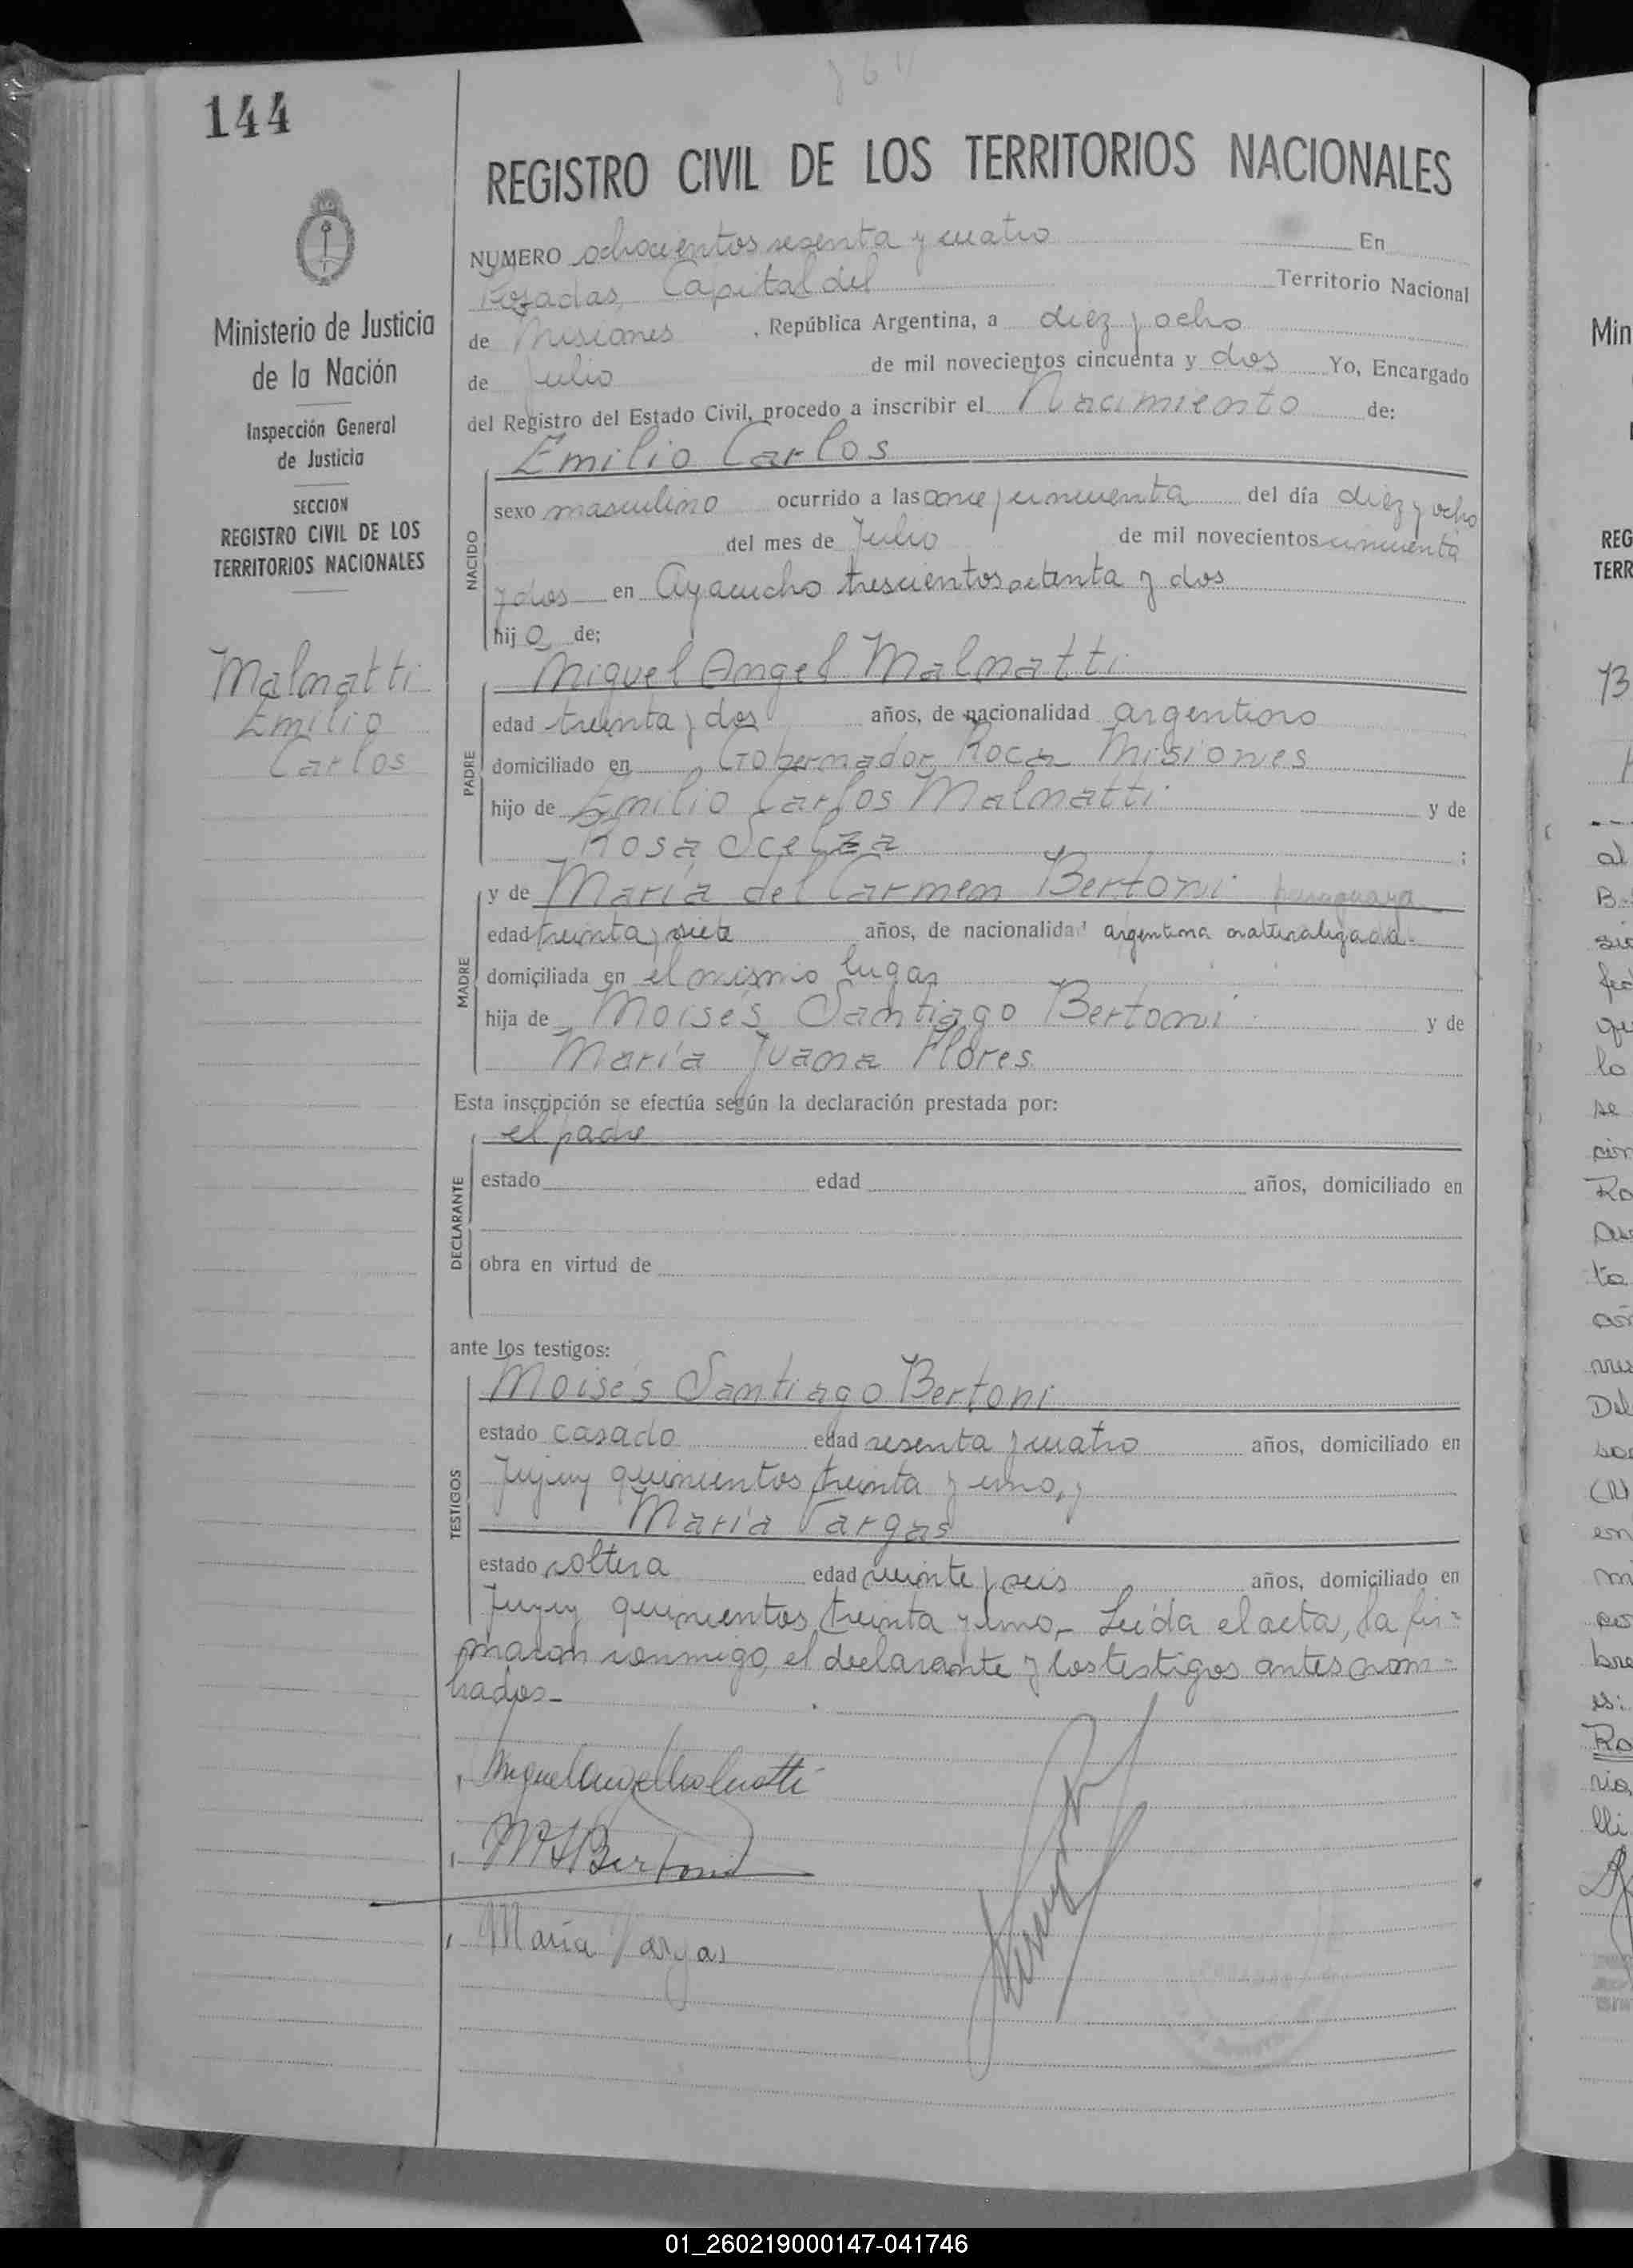 144
REGISTRO CIVIL DE LOS TERRITORIOS NACIONALES
Ministerio de Justicia
de la Nación
Inspección General
de Justicia
SECCION
REGISTRO CIVIL DE LOS
TERRITORIOS NACIONALES
Malnatti
Emilio
Carlos
NUMERO ochocientos sesenta y cuatro En
Posadas, Capital del Territorio Nacional
de Misiones , República Argentina, a diez y ocho
de Julio de mil novecientos cincuenta y dos Yo, Encargado
del Registro del Estado Civil, procedo a inscribir el Nacimiento de:
NACIDO
Emilio Carlos
sexo masculino ocurrido a las once y cincuenta del día diez y ocho
del mes de Julio de mil novecientos cincuenta
y dos en Ayacucho trescientos setenta y dos
hijo de:
PADRE
Miguel Angel Malnatti
edad treinta y dos años, de nacionalidad argentino
domiciliado en Gobernador Roca Misiones
hijo de Emilio Carlos Malnatti y de
Rosa Scelza ;
MADRE
y de María del Carmen Bertoni paraguaya
edad treinta y siete años, de nacionalidad argentina naturalizada.
domiciliada en el mismo lugar
hija de Moisés Santiago Bertoni y de
María Juana Flores
Esta inscripción se efectúa según la declaración prestada por:
DECLARANTE
el padre
estado edad años, domiciliado en
obra en virtud de
ante los testigos:
TESTIGOS
Moisés Santiago Bertoni
estado casado edad sesenta y cuatro años, domiciliado en
Jujuy quinientos treinta y uno, y
María Vargas
estado soltera edad veinte y seis años, domiciliado en
Jujuy quinientos treinta y uno.- Leída el acta, la fir=
maron conmigo, el declarante y los testigos antes nom=
brados-
Miguel Angel Malnatti
MSBertoni
María Vargas
Min
REG
TERR
al
lo
se
Ro
ta
Del
en
bre
es:
Ro
01_260219000147-041746